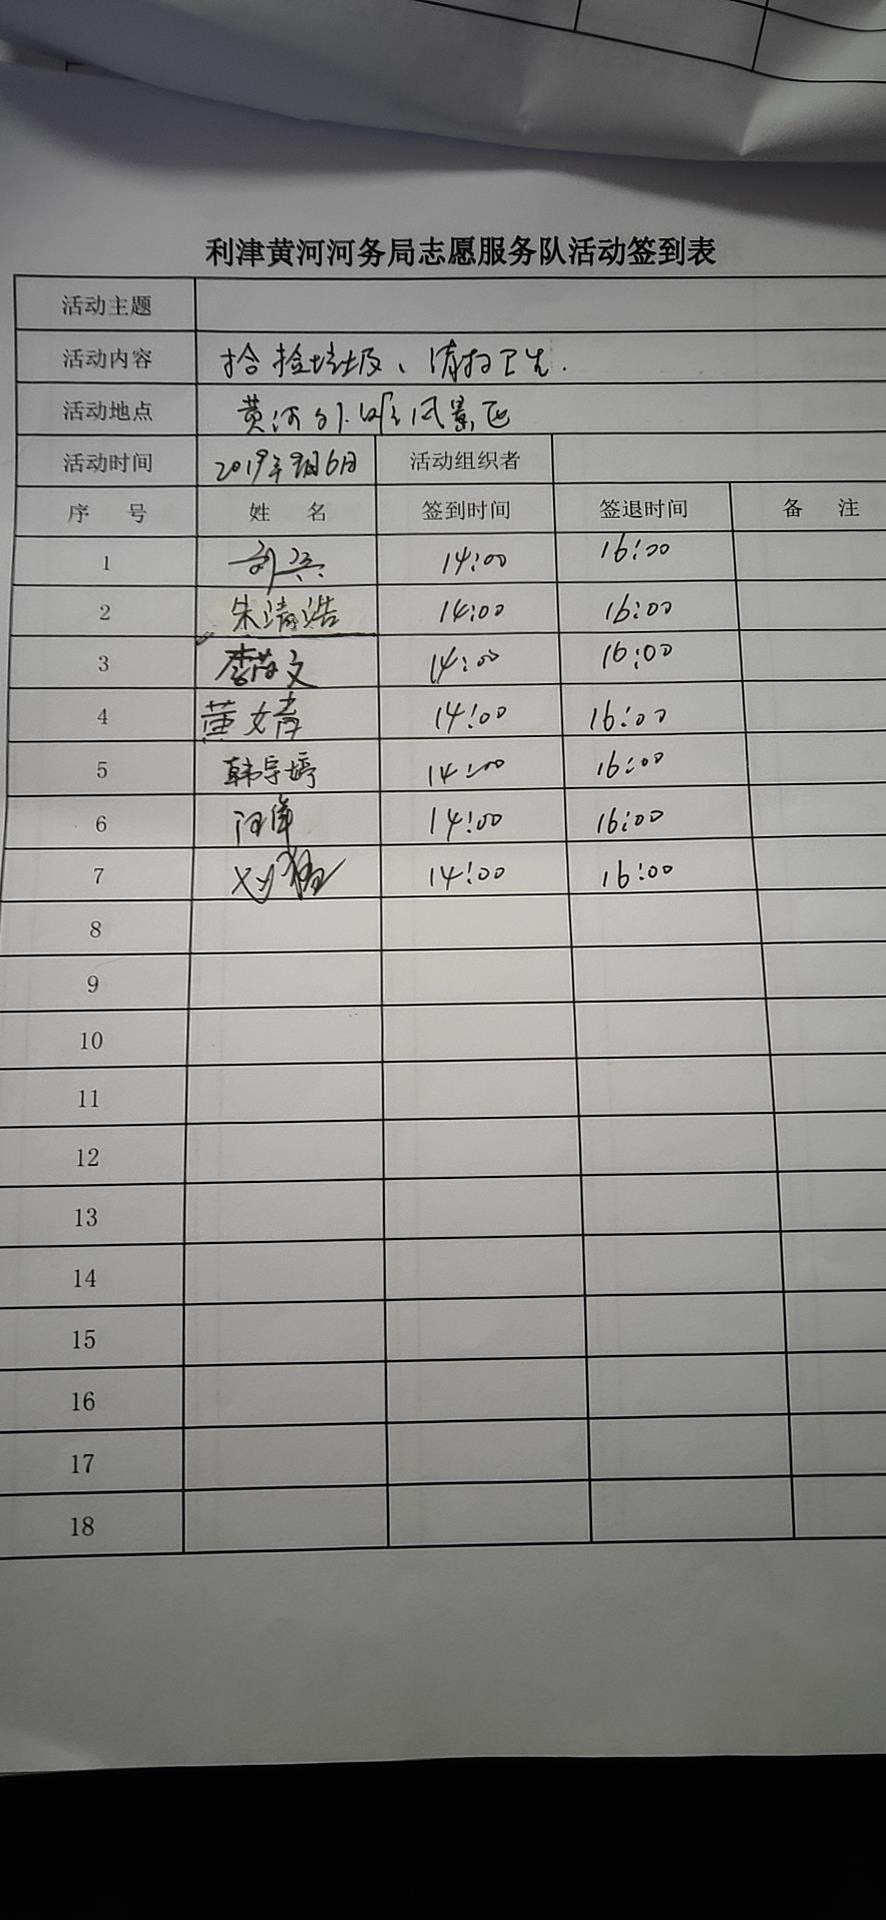 利津黄河河务局志愿服务队活动签到表
活动主题
活动内容 拾捡垃圾、清扫卫生.
活动地点 黄河外滩风景区
活动时间 2019年9月6日 活动组织者
序 号 姓 名 签到时间 签退时间 备 注
1 14:00 16:00
2 朱清浩 14:00 16:00
3 李 文 14:00 16:00
4 黄文青 14:00 16:00
5 韩宇婷 14:00 16:00
6 14:00 16:00
7 刘 14:00 16:00
8
9
10
11
12
13
14
15
16
17
18